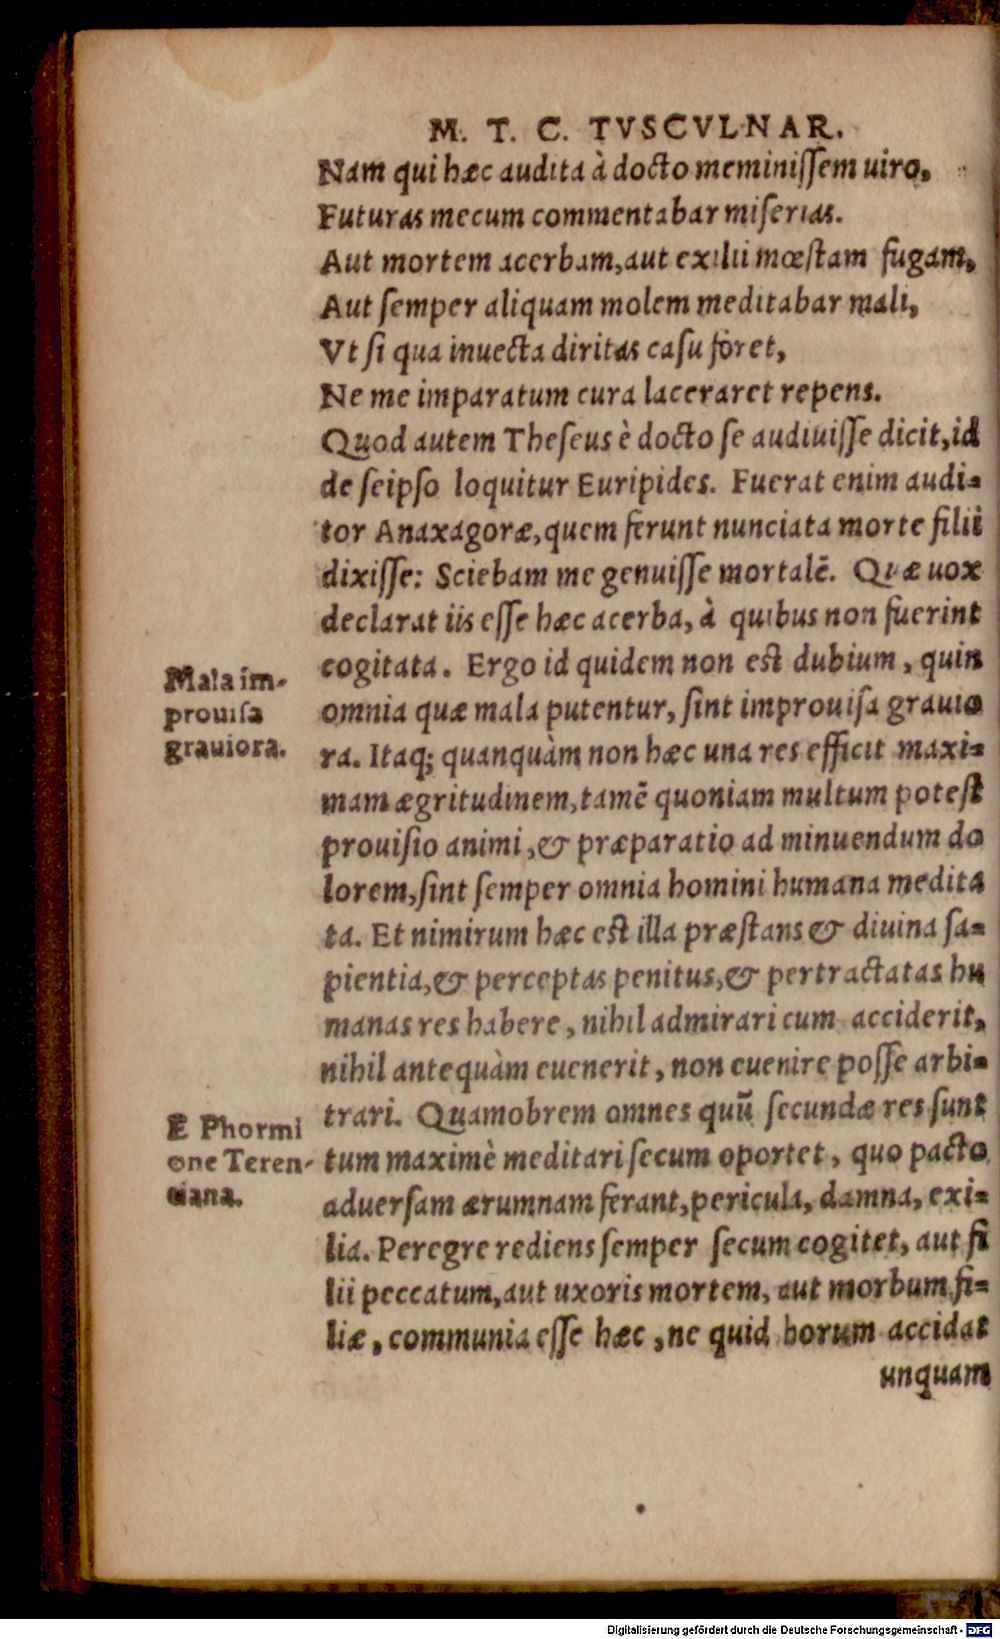 M. T. C. TVSCVLNAR.
Nam qui hæc audita à docto meminiſſem uiro,
Futuras mecum commentabar miſerias.
Aut mortem acerbam,aut exilii mœſtam fugam,
Aut ſemper aliquam molem meditabar mali,
Vt ſi qua inuecta diritas caſu foret,
Ne me imparatum cura laceraret repens.
Quod autem Theſeus è docto ſe audiuiſſe dicit,id
de ſeipſo loquitur Euripides. Fuerat enim audi-
tor Anaxagoræ,quem ferunt nunciata morte filii
dixiſſe: Sciebam me genuiſſe mortalẽ. Quæ uox
declarat iis eſſe hæc acerba, à quibus non fuerint
cogitata. Ergo id quidem non eſt dubium, quin
omnia quæ mala putentur, ſint improuiſa grauio
ra. Itaq; quanquàm non hæc una res efficit maxi-
mam ægritudinem,tamẽ quoniam multum poteſt
prouiſio animi,& præparatio ad minuendum do
lorem,ſint ſemper omnia homini humana medita
ta. Et nimirum hæc eſt illa præſtans & diuina ſa-
pientia,& perceptas penitus,& pertractatas hu
manas res habere, nihil admirari cum acciderit,
nihil antequàm euenerit, non euenire poſſe arbi-
trari. Quamobrem omnes quũ ſecundæ res ſunt
tum maximè meditari ſecum oportet, quo pacto
aduerſam ærumnam ferant,pericula, damna, exi-
lia. Peregre rediens ſemper ſecum cogitet, aut fi
lii peccatum,aut uxoris mortem, aut morbum fi-
liæ, communia eſſe hæc, ne quid horum accidat
unquam
Mala im-
prouiſa
grauiora.
E Phormi
one Teren-
ciana.
Digitalisierung gefördert durch die Deutsche Forschungsgemeinschaft - DFG